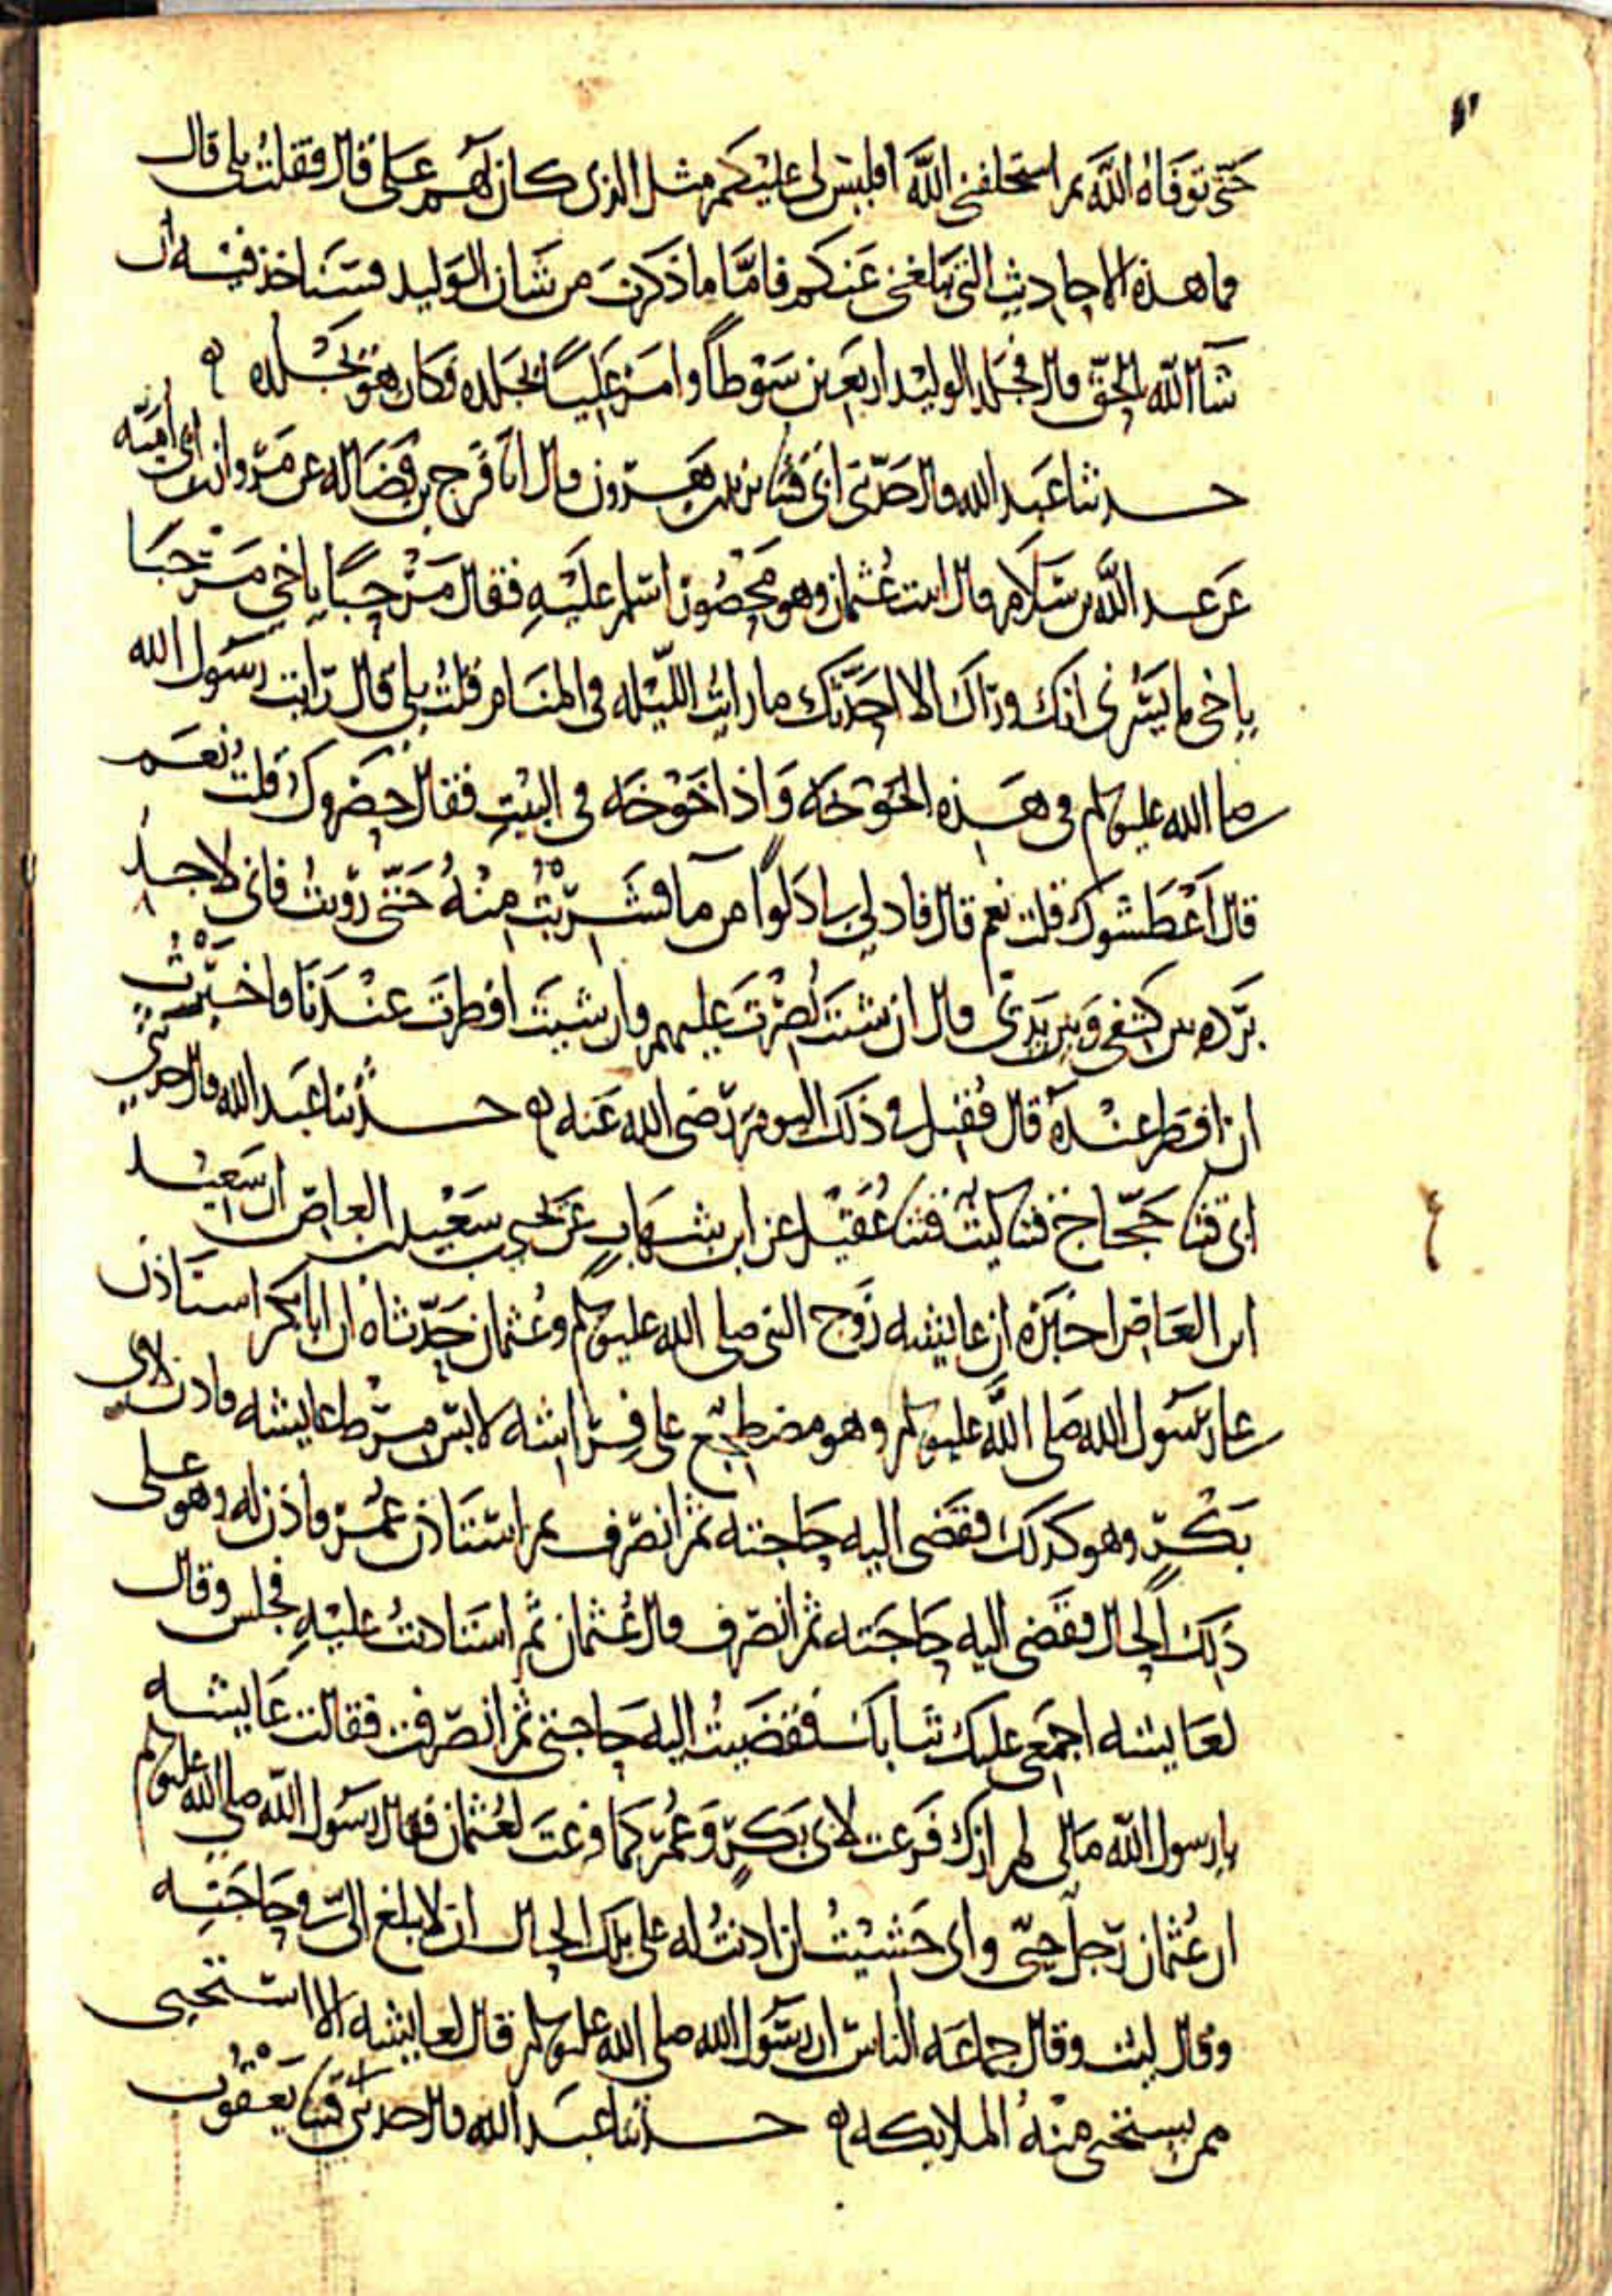 حَتّى توفاهُ اللَّه ثم استخلفني اللَّه افليس لي عليكم مثل الذي كان لهم عَلي قال فقلت بلى قال
فما هذه الاحاديث التي تبلغني عنكم فامَّا ما ذكرت من شان الوليد فسَناخذ فيه ان
شآ اللّه بالحقّ قال فجلد الوليد اربعين سَوْطاً وامر عَلياً بجَلده فكان هو يَجْلده ه
حدثنا عَبد الله قال حَدّثني ابي قثنا يزيد بن هرون قال انا فرج بن فضاله عن مروان بن ابي اميّه
عَن عبد اللَّه بن سَلام قال اتيت عُثمان وهو مَحْصُور اسَلم عليْهِ فقال مَرْحبًا ياخي مَرْحبَا
ياخي ما يسُرني انك وراك الا احَدّثك ما رايتُ الليّله في المنام قلتُ بلى قال رَايت رسَول الله
صلى الله عليه وسلم في هذه الخَوْخَه وَاذا خَوْخَه في البيْتِ فقال حَصَروك قلتُ نعَم
قال اَعْطَشوك قلت نعم قال فادلي لي دَلوًا من ما فشَربْتُ منْهُ حَتّى روَيتُ فاني لاجدُ
بَرْده بين كتفي وَبين ثديَّ قال ان شئتَ نُصرْتَ عليهم وان شيتَ افطرتَ عنْدَنَا فاخترْتُ
ان افطر عنْدهُ قال فقتل في ذلك اليوم رضي الله عَنه ه حدثنا عَبد الله قال حدثني
ابي قثنا حَجّاج قثنا ليث قثنا عُقَيْل عن ابن شهَابٍ عن يحيى بن سَعيْد بن العاص ان سَعيْد
ابن العَاص اخبَرَه ان عايشه زَوج النبي صلى الله عليه وسلم وعُثمان حَدّثاه ان ابا بكر استَاذن
على رسَول الله صَلى اللَّه عليه وسلم وهو مضطجع على فراشه لابسٌ مرْط عايشه فاذن لابي
بَكْرٍ وهو كذلك فقضى اليه حاجته ثم انصرف ثم استَاذن عُمَر فاذن له وهو على
ذَلِك الحال فقَضى اليه حَاجَته ثم انصرف قال عُثمان ثم استَاذنتُ عليْهِ فجلس وقال
لعَايشه اجمَعي عليك ثيابك فقضَيتُ اليه حاجتي ثم انصرفت فقالت عَايشه
يا رسول اللّه مَالي لم ارَك فَزعت لابي بَكرٍ وَعُمر كمَا فزعتَ لعُثمان فقال رسَول اللّه صلى الله عليه وسلم
ان عُثمان رَجل حَييّ واني خَشيْتُ ان اذنتُ له على تلك الحال ان لا يبلغ اليّ في حَاجَته
وقال ليث وقال جماعَه الناس ان رسَول الله صلى الله عليه وسلم قال لعايشه الا استَحيي
ممن يستحي منْهُ الملايكه ه حدثنا عَبد الله قال حدثني قثنا يَعْقوب